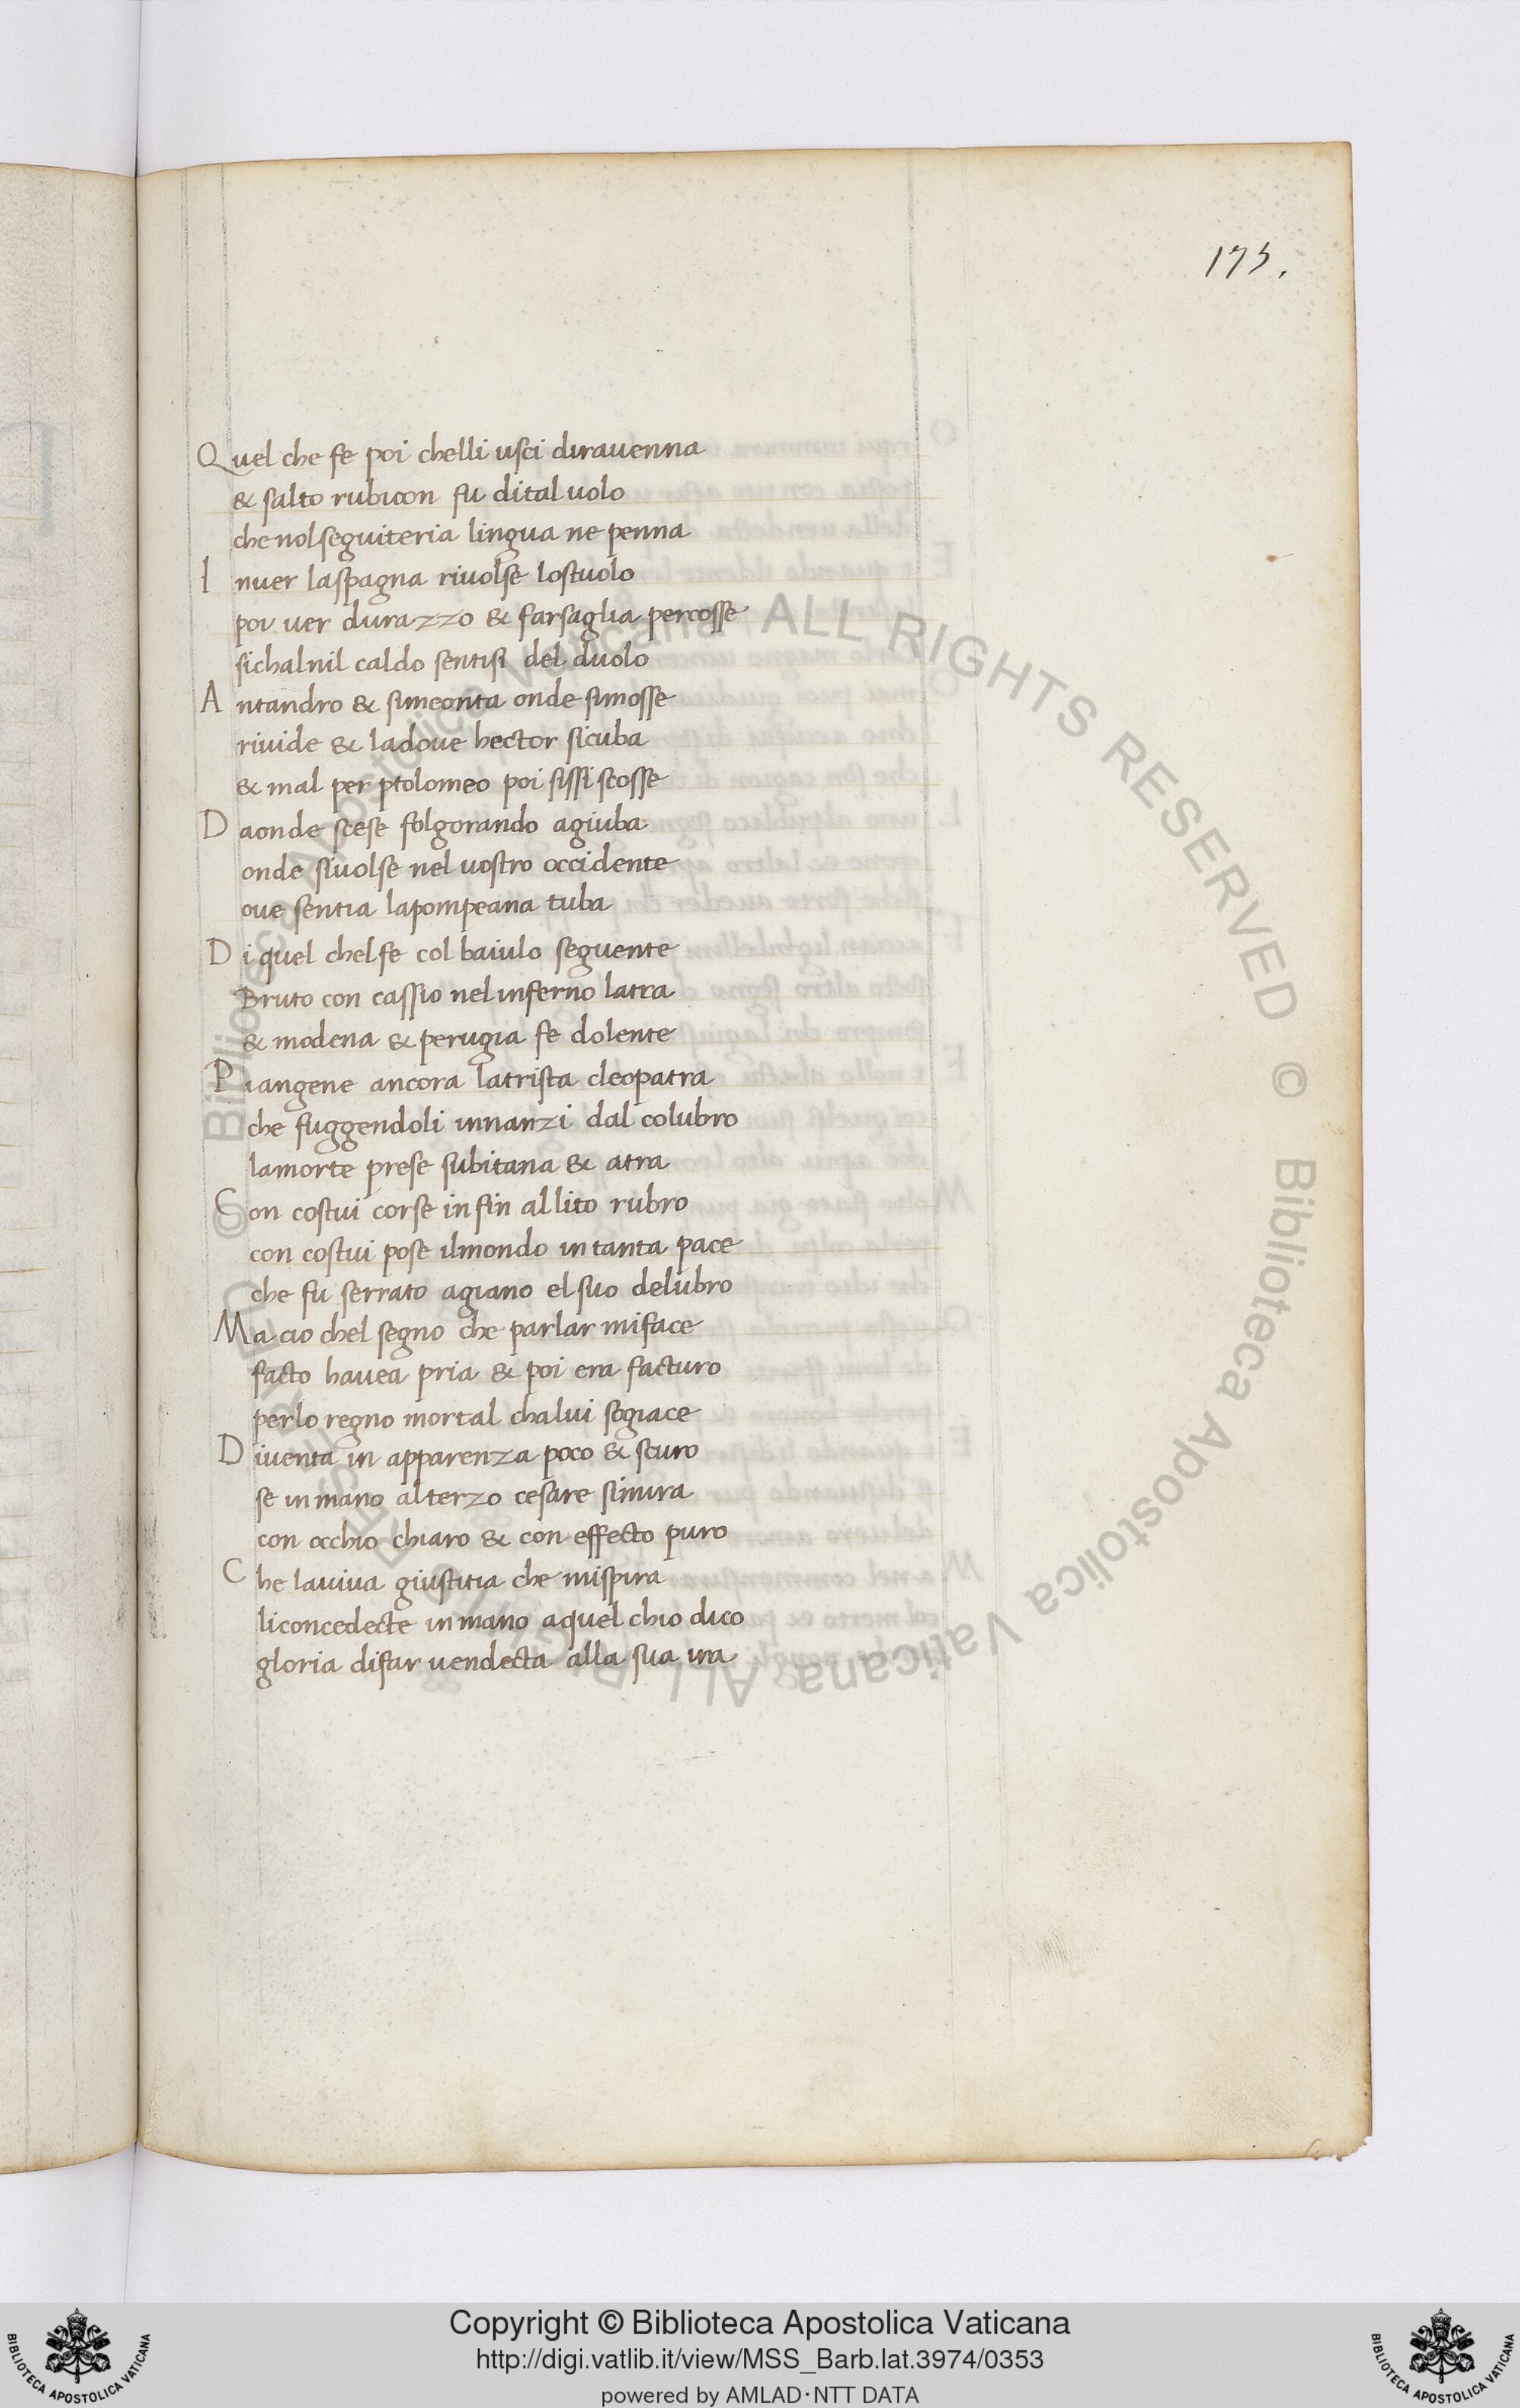 173.
Quel che fe poi chelli usci diravenna
& salto rubicon fu dital uolo
che nolseguiteria lingua ne penna
Inuer laspagna riuolse lostuolo
poi uer durazzo & farsaglia percosse
sichalnil caldo sentisi del duolo
Antandro & simeonta onde simosse
riuide & ladoue hector sicuba
& mal per ptolomeo poi sissi scosse
Daonde scese folgorando agiuba
onde siuolse nel uostro occidente
oue sentia lapompeana tuba
Di quel chelfe col baiulo seguente
Bruto con cassio nel inferno latra
& modena & perugia fe dolente
Piangene ancora latrista cleopatra
che fuggendoli innanzi dal colubro
lamorte prese subitana & atra
Con costui corse in fin allito rubro
con costui pose ilmondo in tanta pace
che fu serrato agiano el suo delubro
Ma cio chel segno che parlar miface
facto hauea pria & poi era facturo
perlo regno mortal chalui sogiace
Diuenta in apparenza poco & scuro
se in mano alterzo cesare simira
con occhio chiaro & con effecto puro
Che lauiua giustitia che mispira
liconcedecte in mano aquel chio dico
gloria difar uendecta alla sua ira
© Biblioteca Apostolica Vaticana ALL RIGHTS RESERVED © Biblioteca Apostolica Vaticana ALL RIGHTS RESERVED
Copyright © Biblioteca Apostolica Vaticana
http://digi.vatlib.it/view/MSS_Barb.lat.3974/0353
powered by AMLAD·NTT DATA
BIBLIOTECA APOSTOLICA VATICANA
BIBLIOTECA APOSTOLICA VATICANA